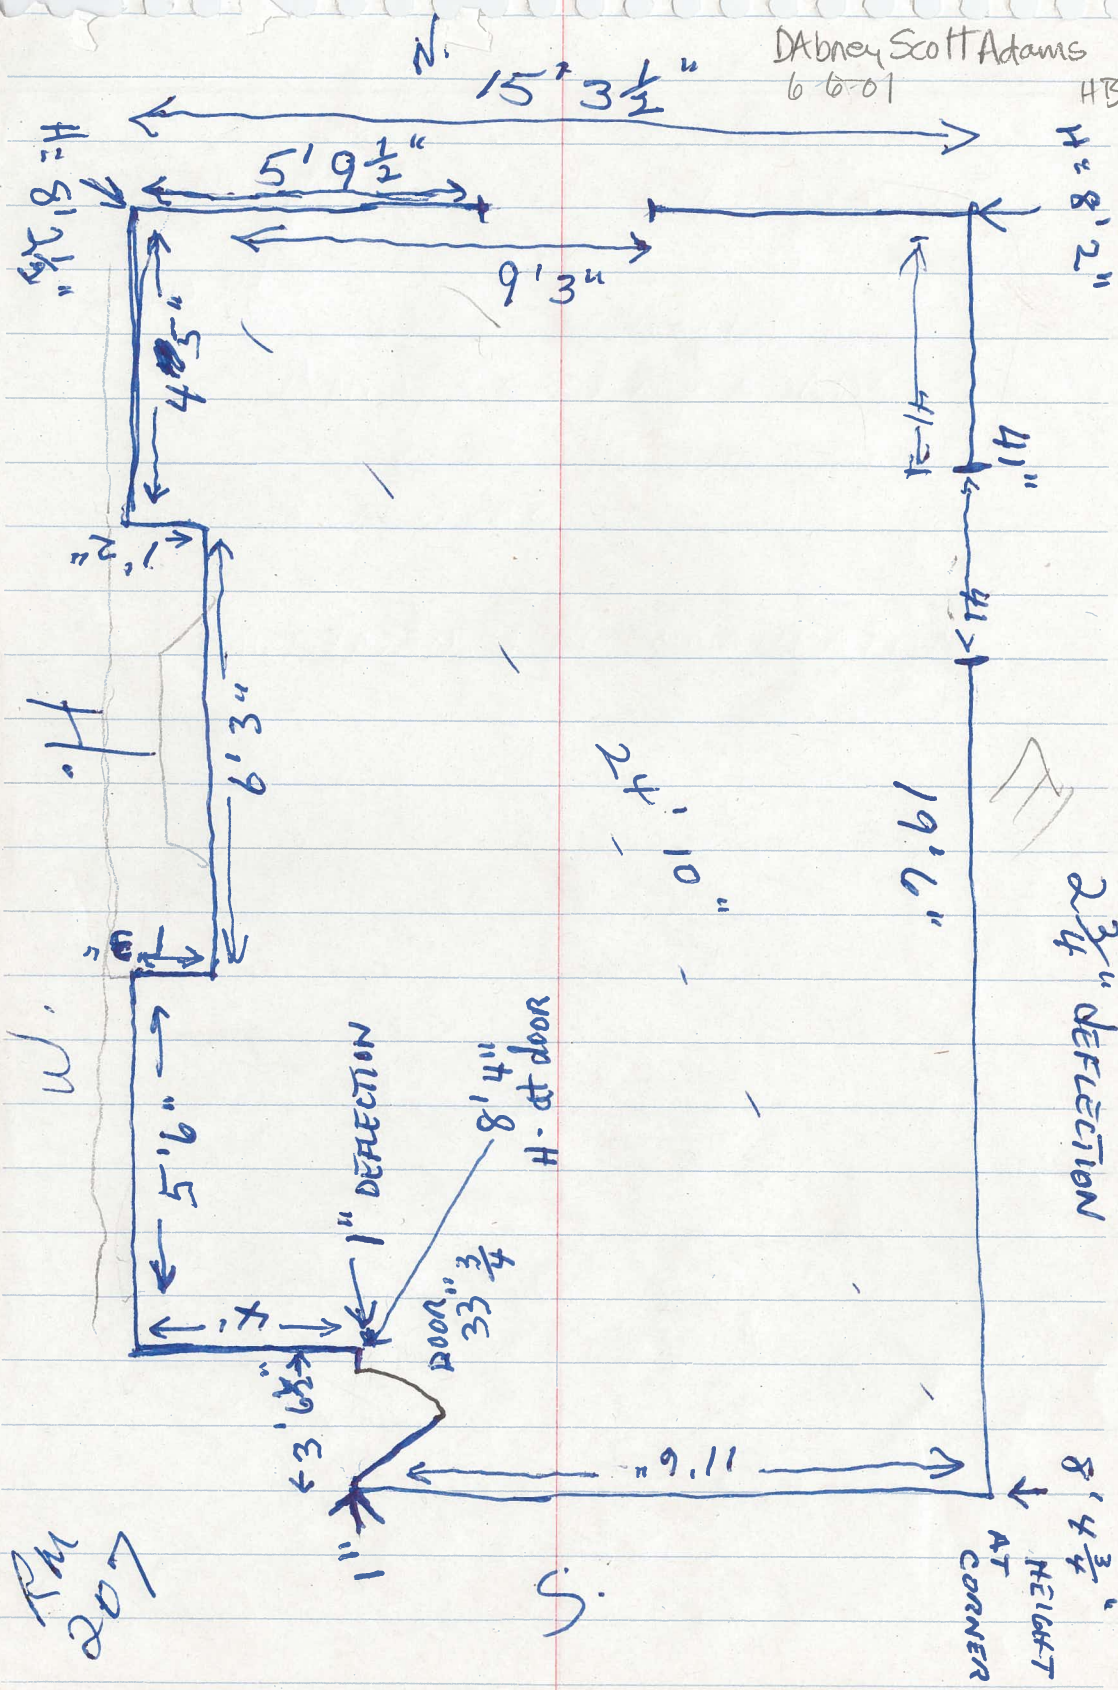 DAbney Scott Adams
6-6-01
HB
N.
15' 3 1/2"
H = 8' 2"
5' 9 1/2"
9' 3"
4' 5"
41 1/2
41"
41
1' 2"
6' 3"
H.
24' 10"
19' 6"
2 3/4" DEFLECTION
W.
5' 6"
1" DEFLECTION
8' 4"
H. at DOOR
DOOR
33 3/4"
3' 6 1/2"
11' 9"
1"
S.
8' 4 3/4"
HEIGHT
AT
CORNER
RM
207